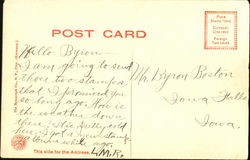 POST CARD
Place Stamp Here
Domestic One cent
Foreign Two cents
Hello Byron-
I am going to send
those two stamps
that I promised you
so long ago. How is
the weather down
there, it is pretty cold
here. I got a new stamp
write
This side for the Address.
Mr. Byron Boston
Iowa Falls
Iowa.